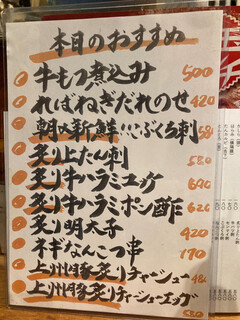 本日のおすすめ
牛もつ煮込み 500
ればねぎだれのせ 420
朝〆新鮮ぶくろ刺 680
炙り上たん刺 580
炙り牛ハラミユッケ 690
炙り牛ハラミポン酢 620
炙り明太子 420
ネギなんこつ串 190
上州豚炙りチャーシュー 480
上州豚炙りチャーシューエッグ 530